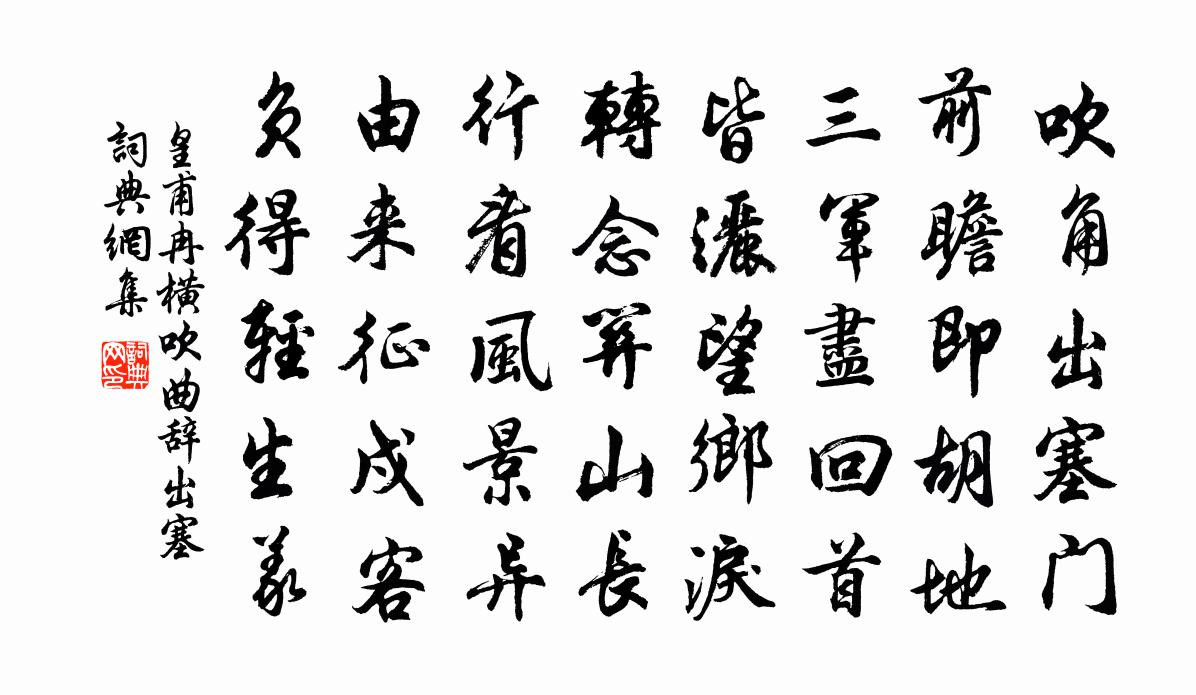 吹角出塞门
前瞻即胡地
三軍盡回首
皆灑望鄉淚
轉念關山長
行看風景异
由来征戍客
负得輕生義
皇甫冉橫吹曲辞出塞
詞典網集
詞典网印